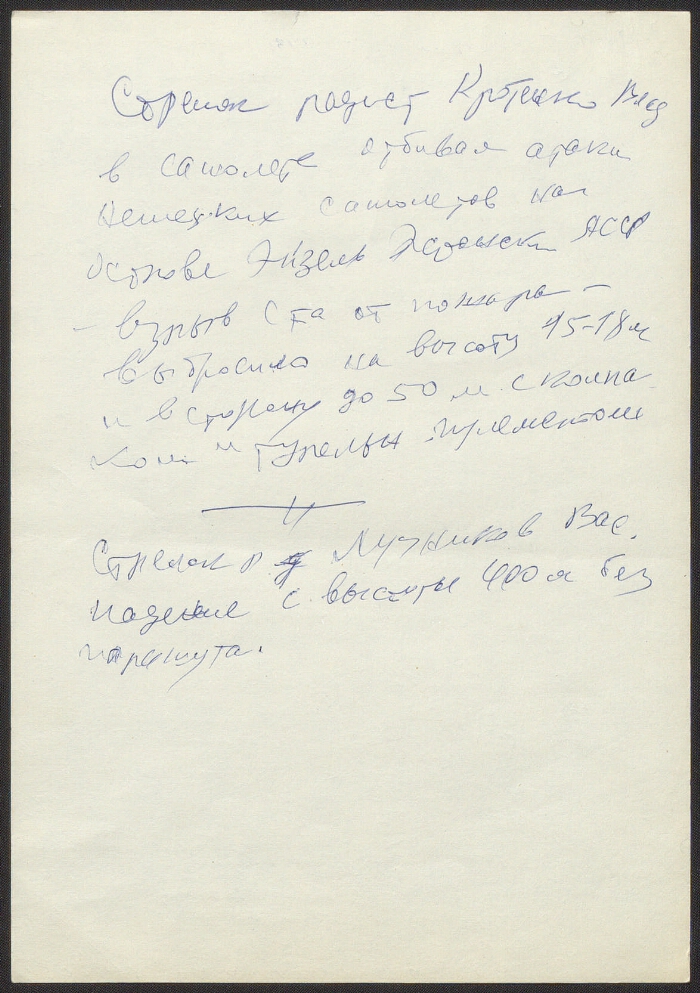 Стрелок радист Кротенко Влад
в самолете отбивал атаки
немецких самолетов на
острове Экзель Эстонски ЯССР
- взрыв с-та от пожара -
выбросило на высоту 15-18 м
и в сторону до 50 м. с колпа
ком и турелью пулеметом
Стрелок р Лучников Вас.
падение с высоты 400 м без
парашута.